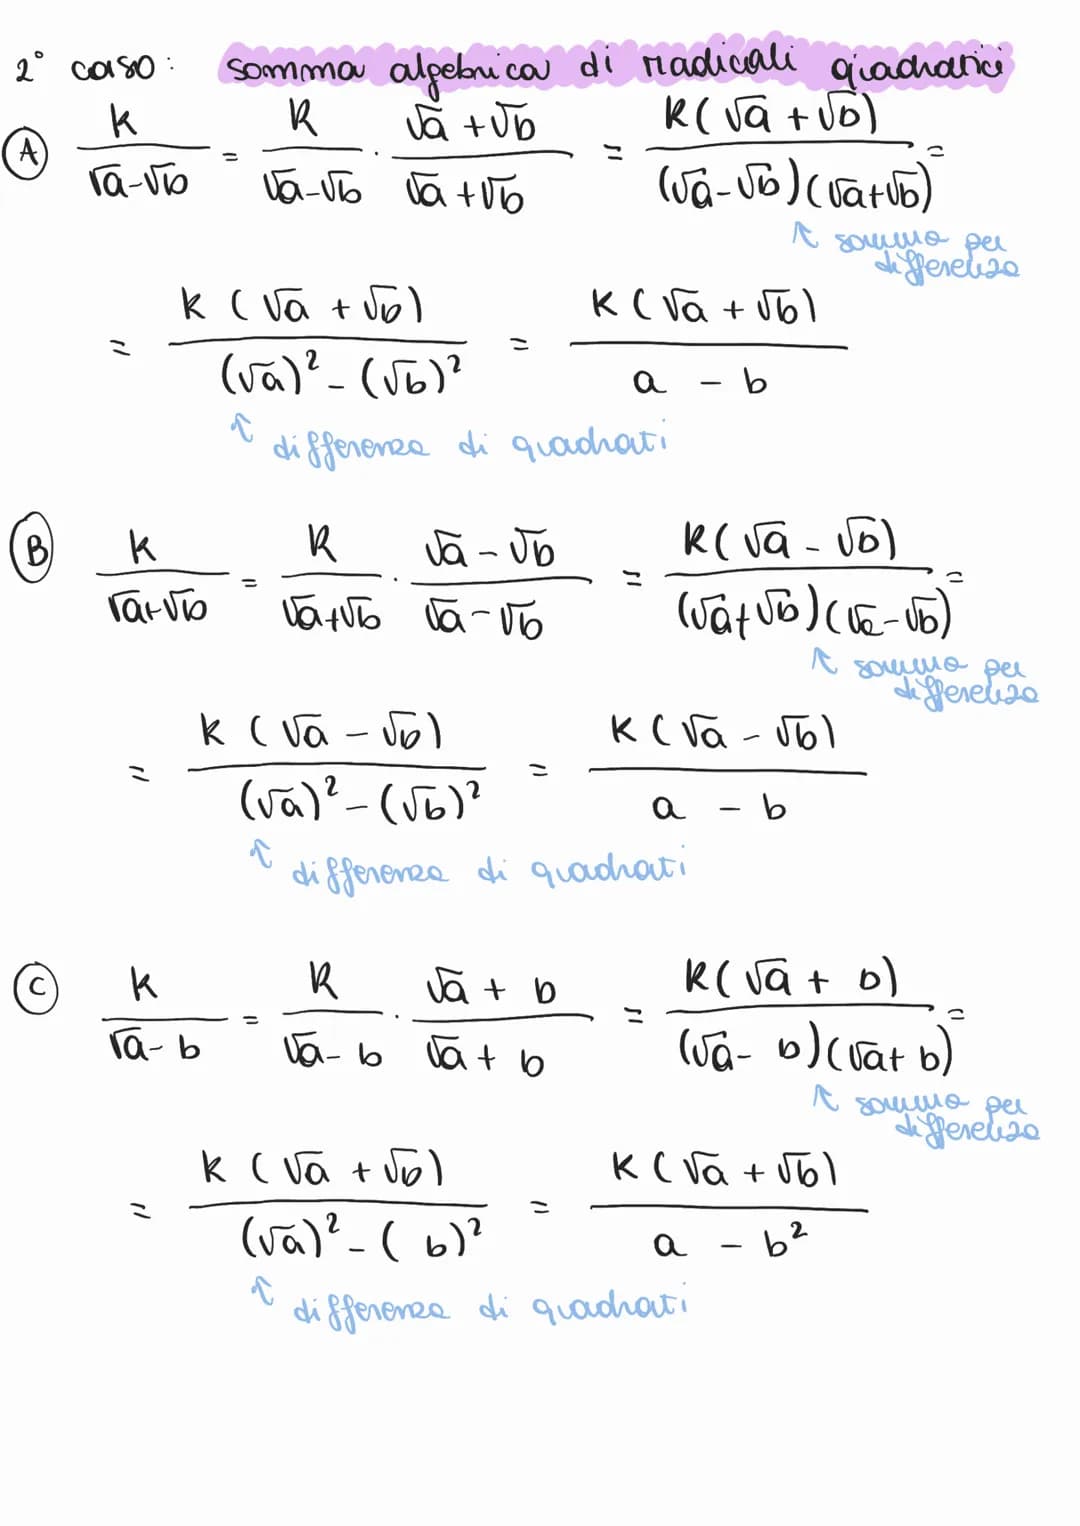 2° caso: somma algebrica di radicali quadratici
A k/(√a-√b) = k/(√a-√b) · (√a+√b)/(√a+√b) = k(√a+√b)/((√a-√b)(√a+√b)) =
↑ somma per
differenza
= k(√a+√b)/((√a)²-(√b)²) = k(√a+√b)/(a-b)
↑ differenza di quadrati
B k/(√a+√b) = k/(√a+√b) · (√a-√b)/(√a-√b) = k(√a-√b)/((√a+√b)(√a-√b)) =
↑ somma per
differenza
= k(√a-√b)/((√a)²-(√b)²) = k(√a-√b)/(a-b)
↑ differenza di quadrati
C k/(√a-b) = k/(√a-b) · (√a+b)/(√a+b) = k(√a+b)/((√a-b)(√a+b)) =
↑ somma per
differenza
= k(√a+√b)/((√a)²-(b)²) = k(√a+√b)/(a-b²)
↑ differenza di quadrati